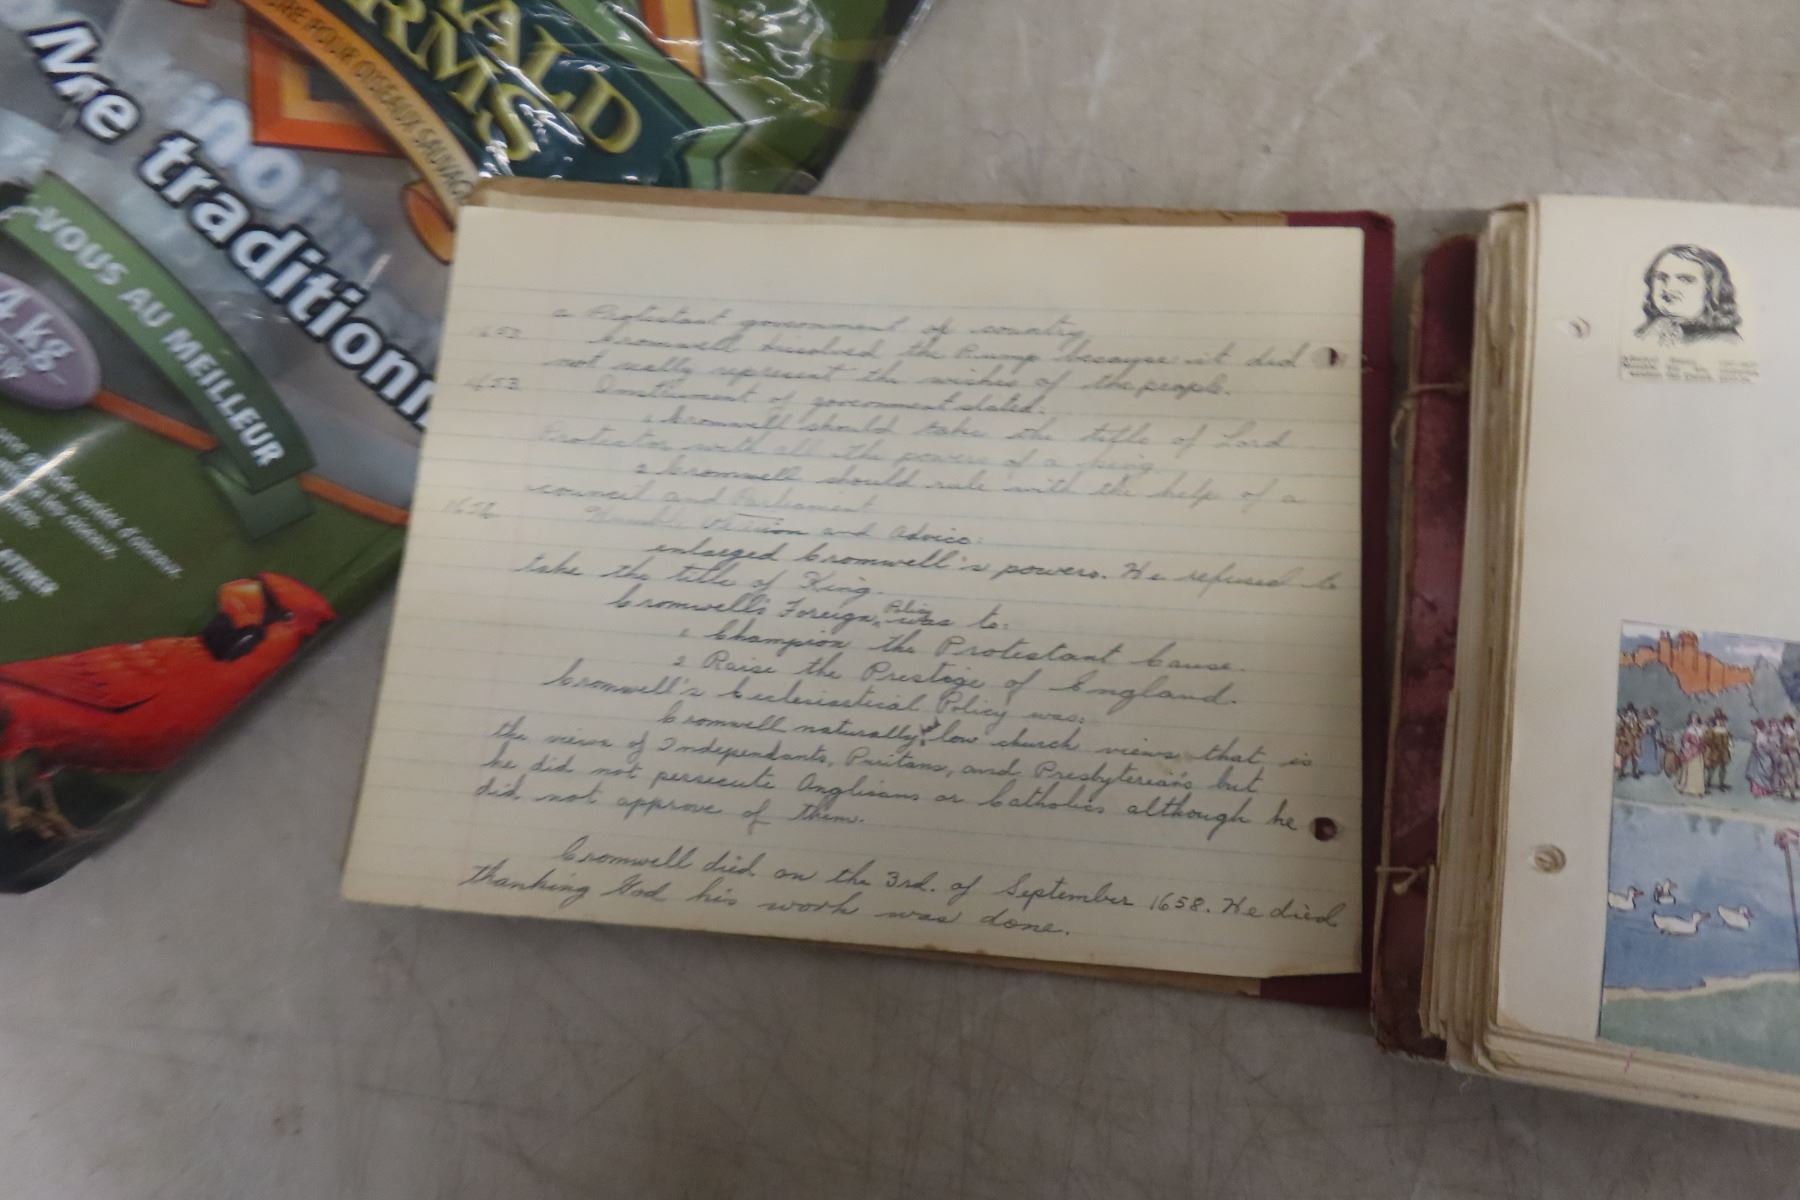 ALD
RMS
POUR OISEAUX SAUVAG
tradition
VOUS AU MEILLEUR
4 kg
a Protestant government of country
1653 Cromwell dissolved the Rump because it did
not really represent the wishes of the people.
1653 Instrument of government stated.
1 Cromwell should take the title of Lord
Protector with all the powers of a King
2 Cromwell should rule with the help of a
council and Parliament
Humble Petition and Advice:
enlarged Cromwell's powers. He refused to
take the title of King.
Cromwell's Foreign Policy was to:
1 Champion the Protestant Cause.
2 Raise the Prestige of England.
Cromwell's Ecclesiastical Policy was:
Cromwell naturally low church views that is
the views of Independants, Puritans, and Presbyterians but
he did not persecute Anglicans or Catholics although he
did not approve of them.
Cromwell died on the 3rd. of September 1658. He died
thanking God his work was done.